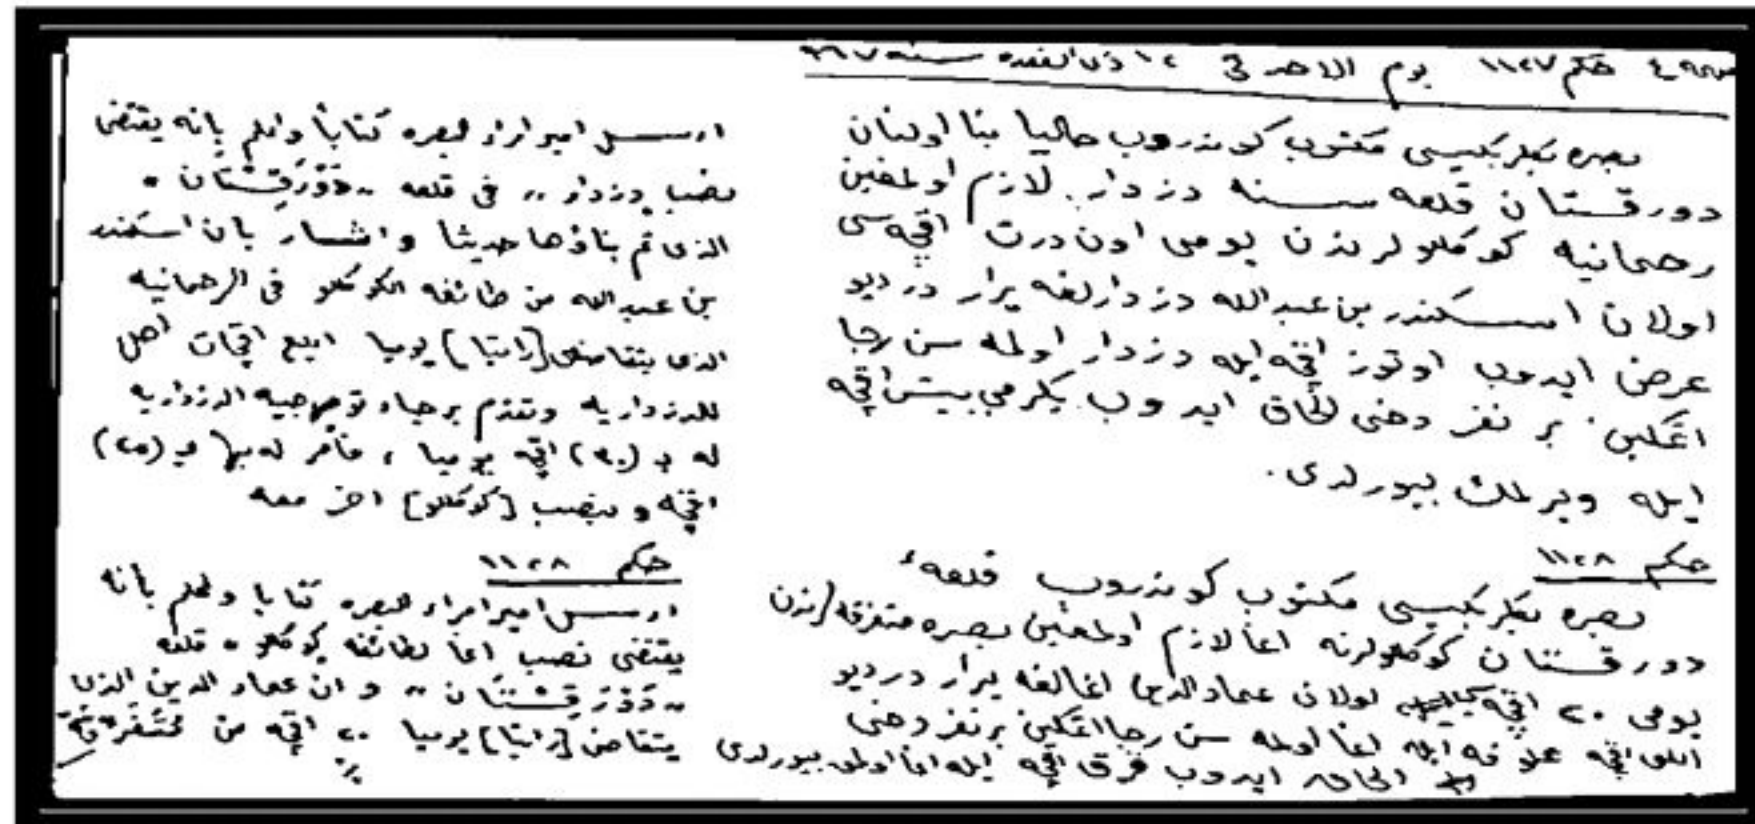 حكم ١١٢٧ يوم الاحد في ١٢ ذى القعده سنه ٩٦٧
بصره بكلربكيسى مكتوب كوندروب حاليا بنا اولنان
دورقستان قلعه سنه دزدار لازم اولمغين
رحمانيه كوكللولرندن يومى اون درت اقچه سى
اولان اسكندر بن عبدالله دزدارلغه يرار در ديو
عرض ايدوب اوتوز اقچه ايله دزدار اولمه سن رجا
اتمكين بر نفر دخى الحاق ايدوب يكرمي بيش اقچه
ايله ويرلمك بيورلدى.
حكم ١١٢٨
بصره بكلربكيسى مكتوب كوندروب قلعهٔ
دورقستان كوكللولرنه اغا لازم اولمغين بصره متفرقه لرندن
يومى ٢٠ اقچه اولان عمادالدين اغالغه يرار در ديو
اللى اقچه علوفه ايله اغا اولمه سن رجا اتمكين بر نفر دخى
الحاق ايدوب قرق اقچه ايله اغا اولمق بيورلدى
ارسل امير امراء البصره كتابا واعلم بانه يقتضى
نصب دزدار ,, في قلعه ,, دَوْرَقِسْتَان ,,
الذى تم بناؤها حديثا واشار بان اسكندر
بن عبدالله من طائفه الكوكللو في الرحمانيه
الذى يتقاضى [راتبا] يوميا اربع اقچات اهل
للدزداريه وتقدم برجاء توجيه الدزداريه
له بـ (٣٠) اقچه يوميا ، فأمر له بها بـ (٢٥)
اقچه و بنصب [كوكللو] اخر معه
حكم ١١٢٨
ارسل امير امراء البصره كتابا واعلم بانه
يقتضى نصب اغا لطائفه كوكللو ,, قلعه
,, دَوْرَقِسْتَان ,, و ان عماد الدين الذى
يتقاضى [راتبا] يوميا ٢٠ اقچه من متفرقة